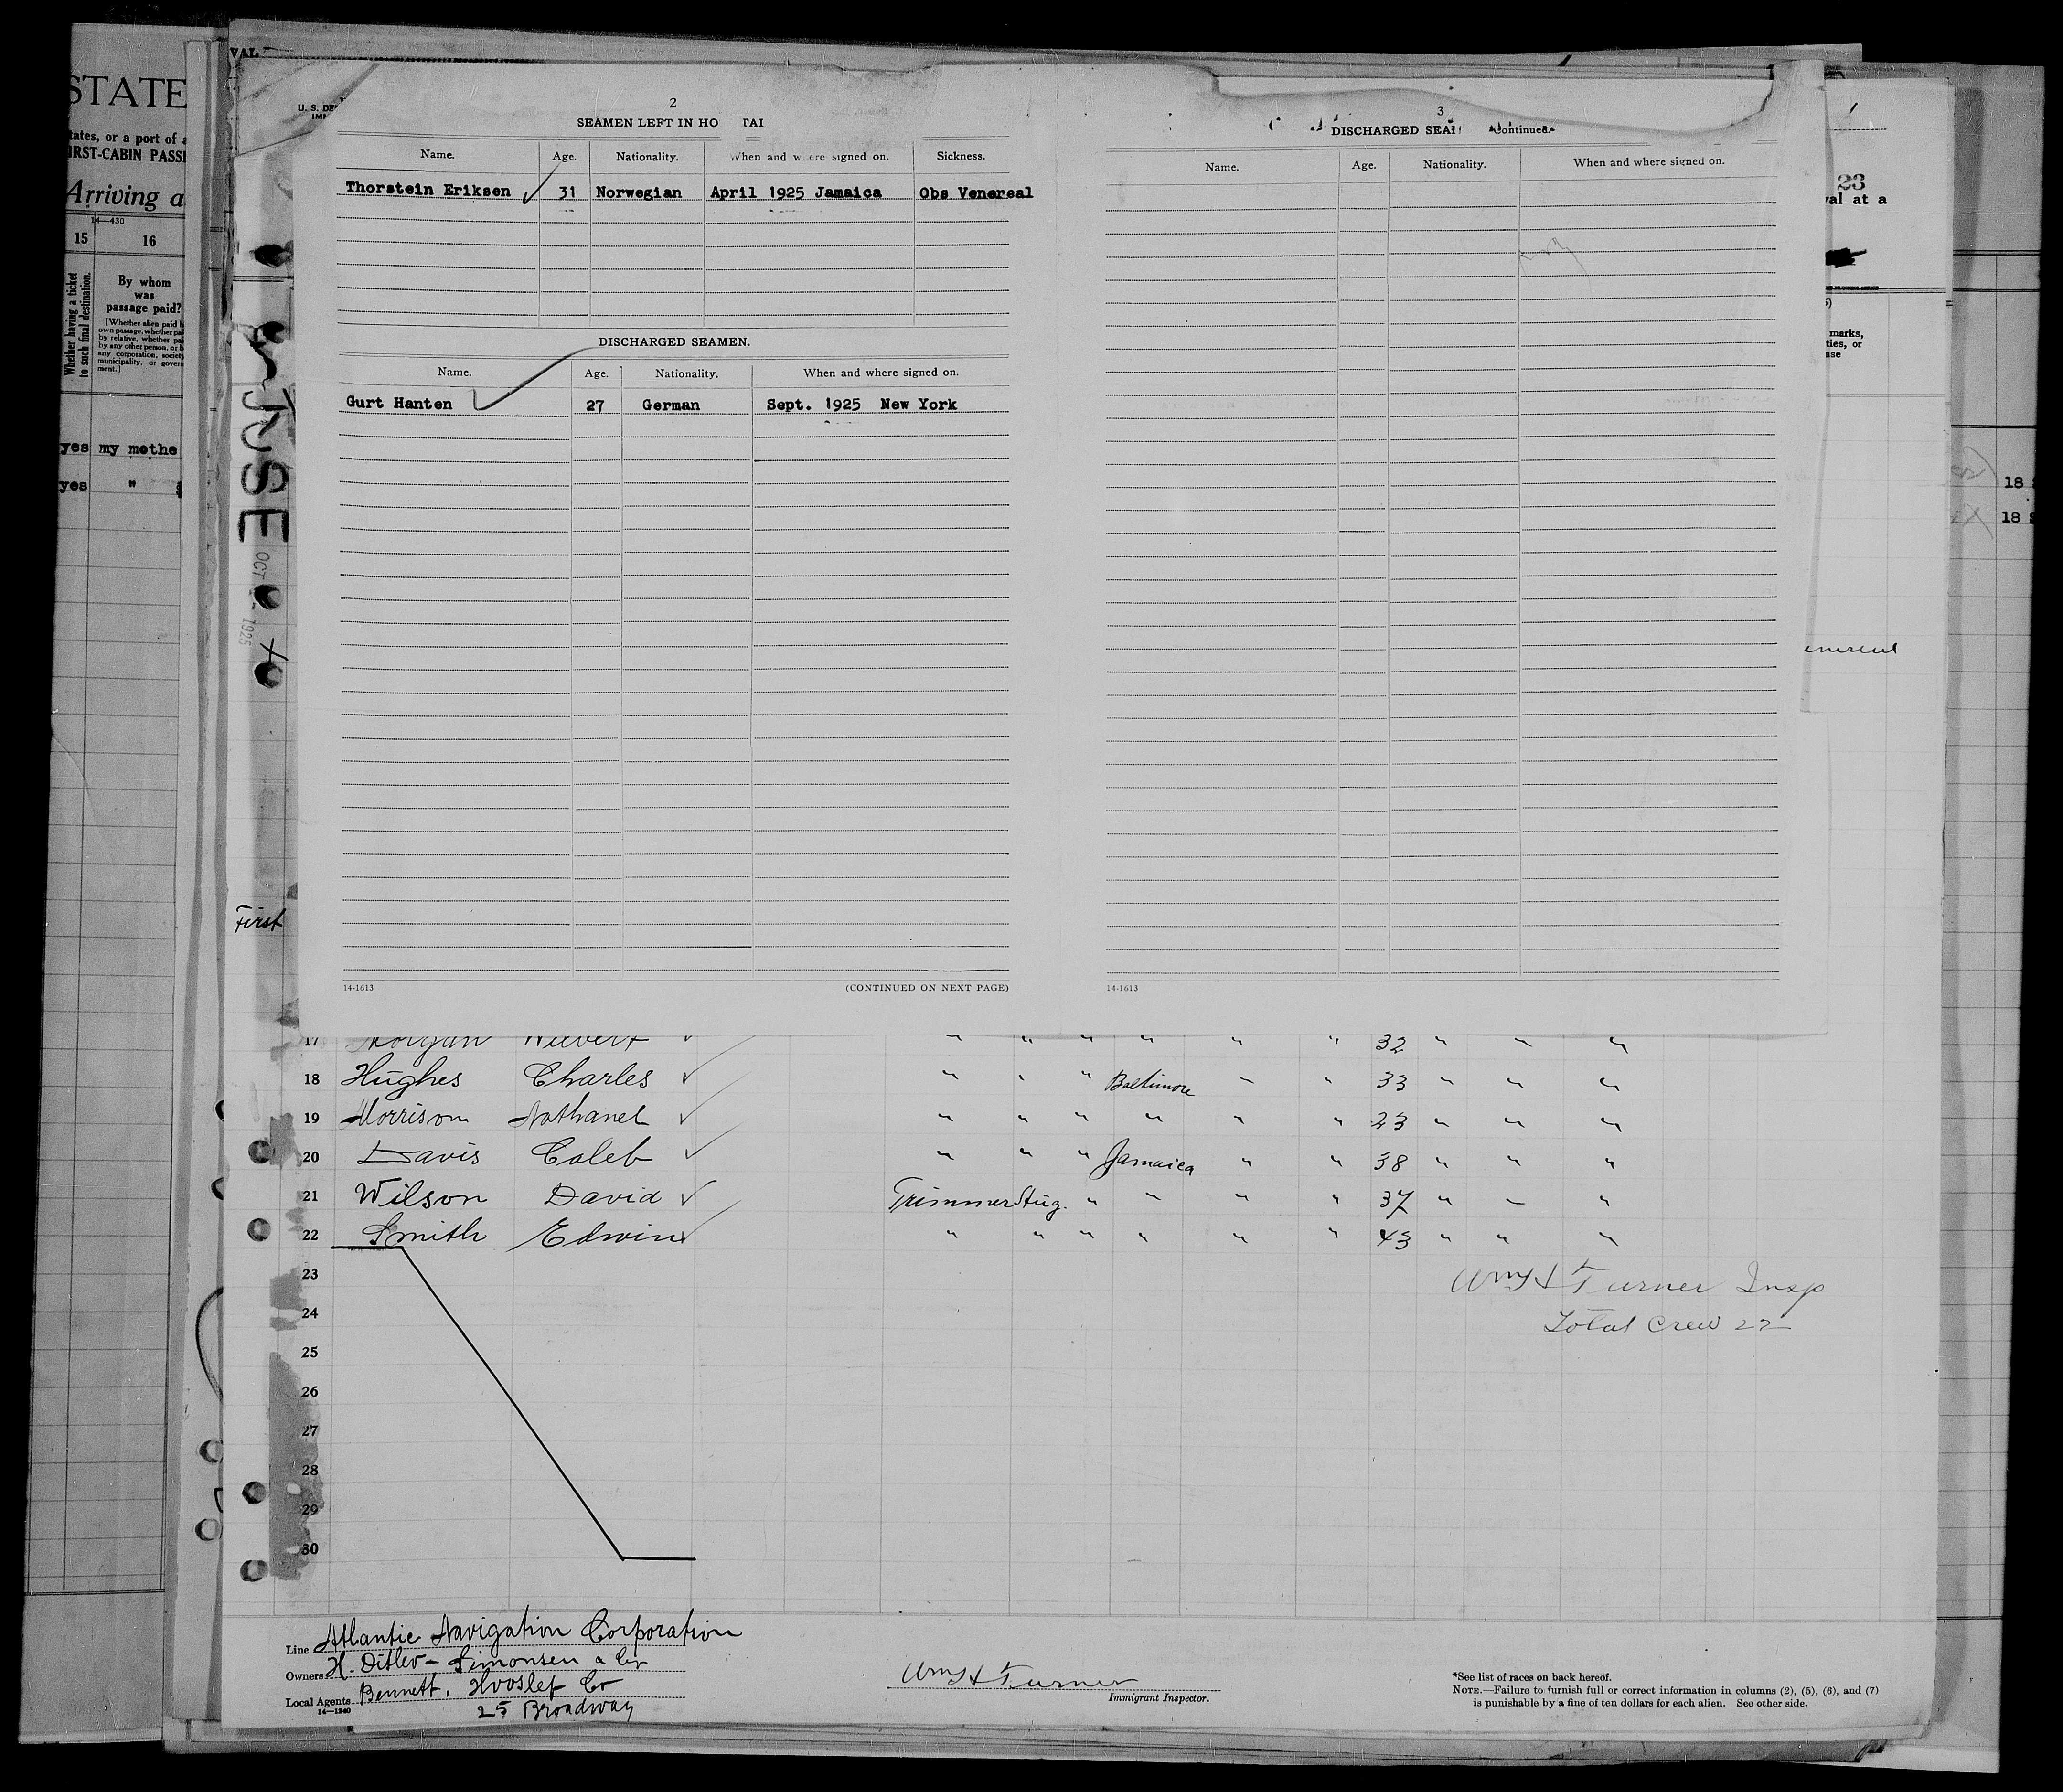 VAL
STATE
tates, or a port of a
IRST-CABIN PASSE
Arriving a
14—430
15 16
Whether having a ticket to such final destination.
By whom
was
passage paid?
[Whether alien paid
own passage, whether pai
by relative, whether pai
by any other person, or b
any corporation, society
municipality, or govern
ment.]
yes my mothe
yes "
U. S. DE
IMM
OCT 1925
First
2
SEAMEN LEFT IN HO TAI
Name. Age. Nationality. When and where signed on. Sickness.
Thorstein Eriksen 31 Norwegian April 1925 Jamaica Obs Venereal
DISCHARGED SEAMEN.
Name. Age. Nationality. When and where signed on.
Gurt Hanten 27 German Sept. 1925 New York
14-1613 (CONTINUED ON NEXT PAGE)
3
DISCHARGED SEA Continued.
Name. Age. Nationality. When and where signed on.
14-1613
23
val at a
marks,
ties, or
ase
18
18
17 Morgan " " " " " " 32 " " "
18 Hughes Charles " " " Baltimore " " 33 " " "
19 Morrison Nathanel " " " " " " 23 " " "
20 Davis Caleb " " " Jamaica " " 38 " " "
21 Wilson David Trimmer " " " " 37 " " "
22 Smith Edwin " " " " " " 43 " " "
23
24
25
26
27
28
29
30
Turner Insp
Total Crew 22
Line Atlantic Navigation Corporation
Owners H. Ditlev-Simonsen & Co
Local Agents Bennett, Hvoslef Co
14—1240
25 Broadway
Turner
Immigrant Inspector.
*See list of races on back hereof.
NOTE.—Failure to furnish full or correct information in columns (2), (5), (6), and (7)
is punishable by a fine of ten dollars for each alien. See other side.